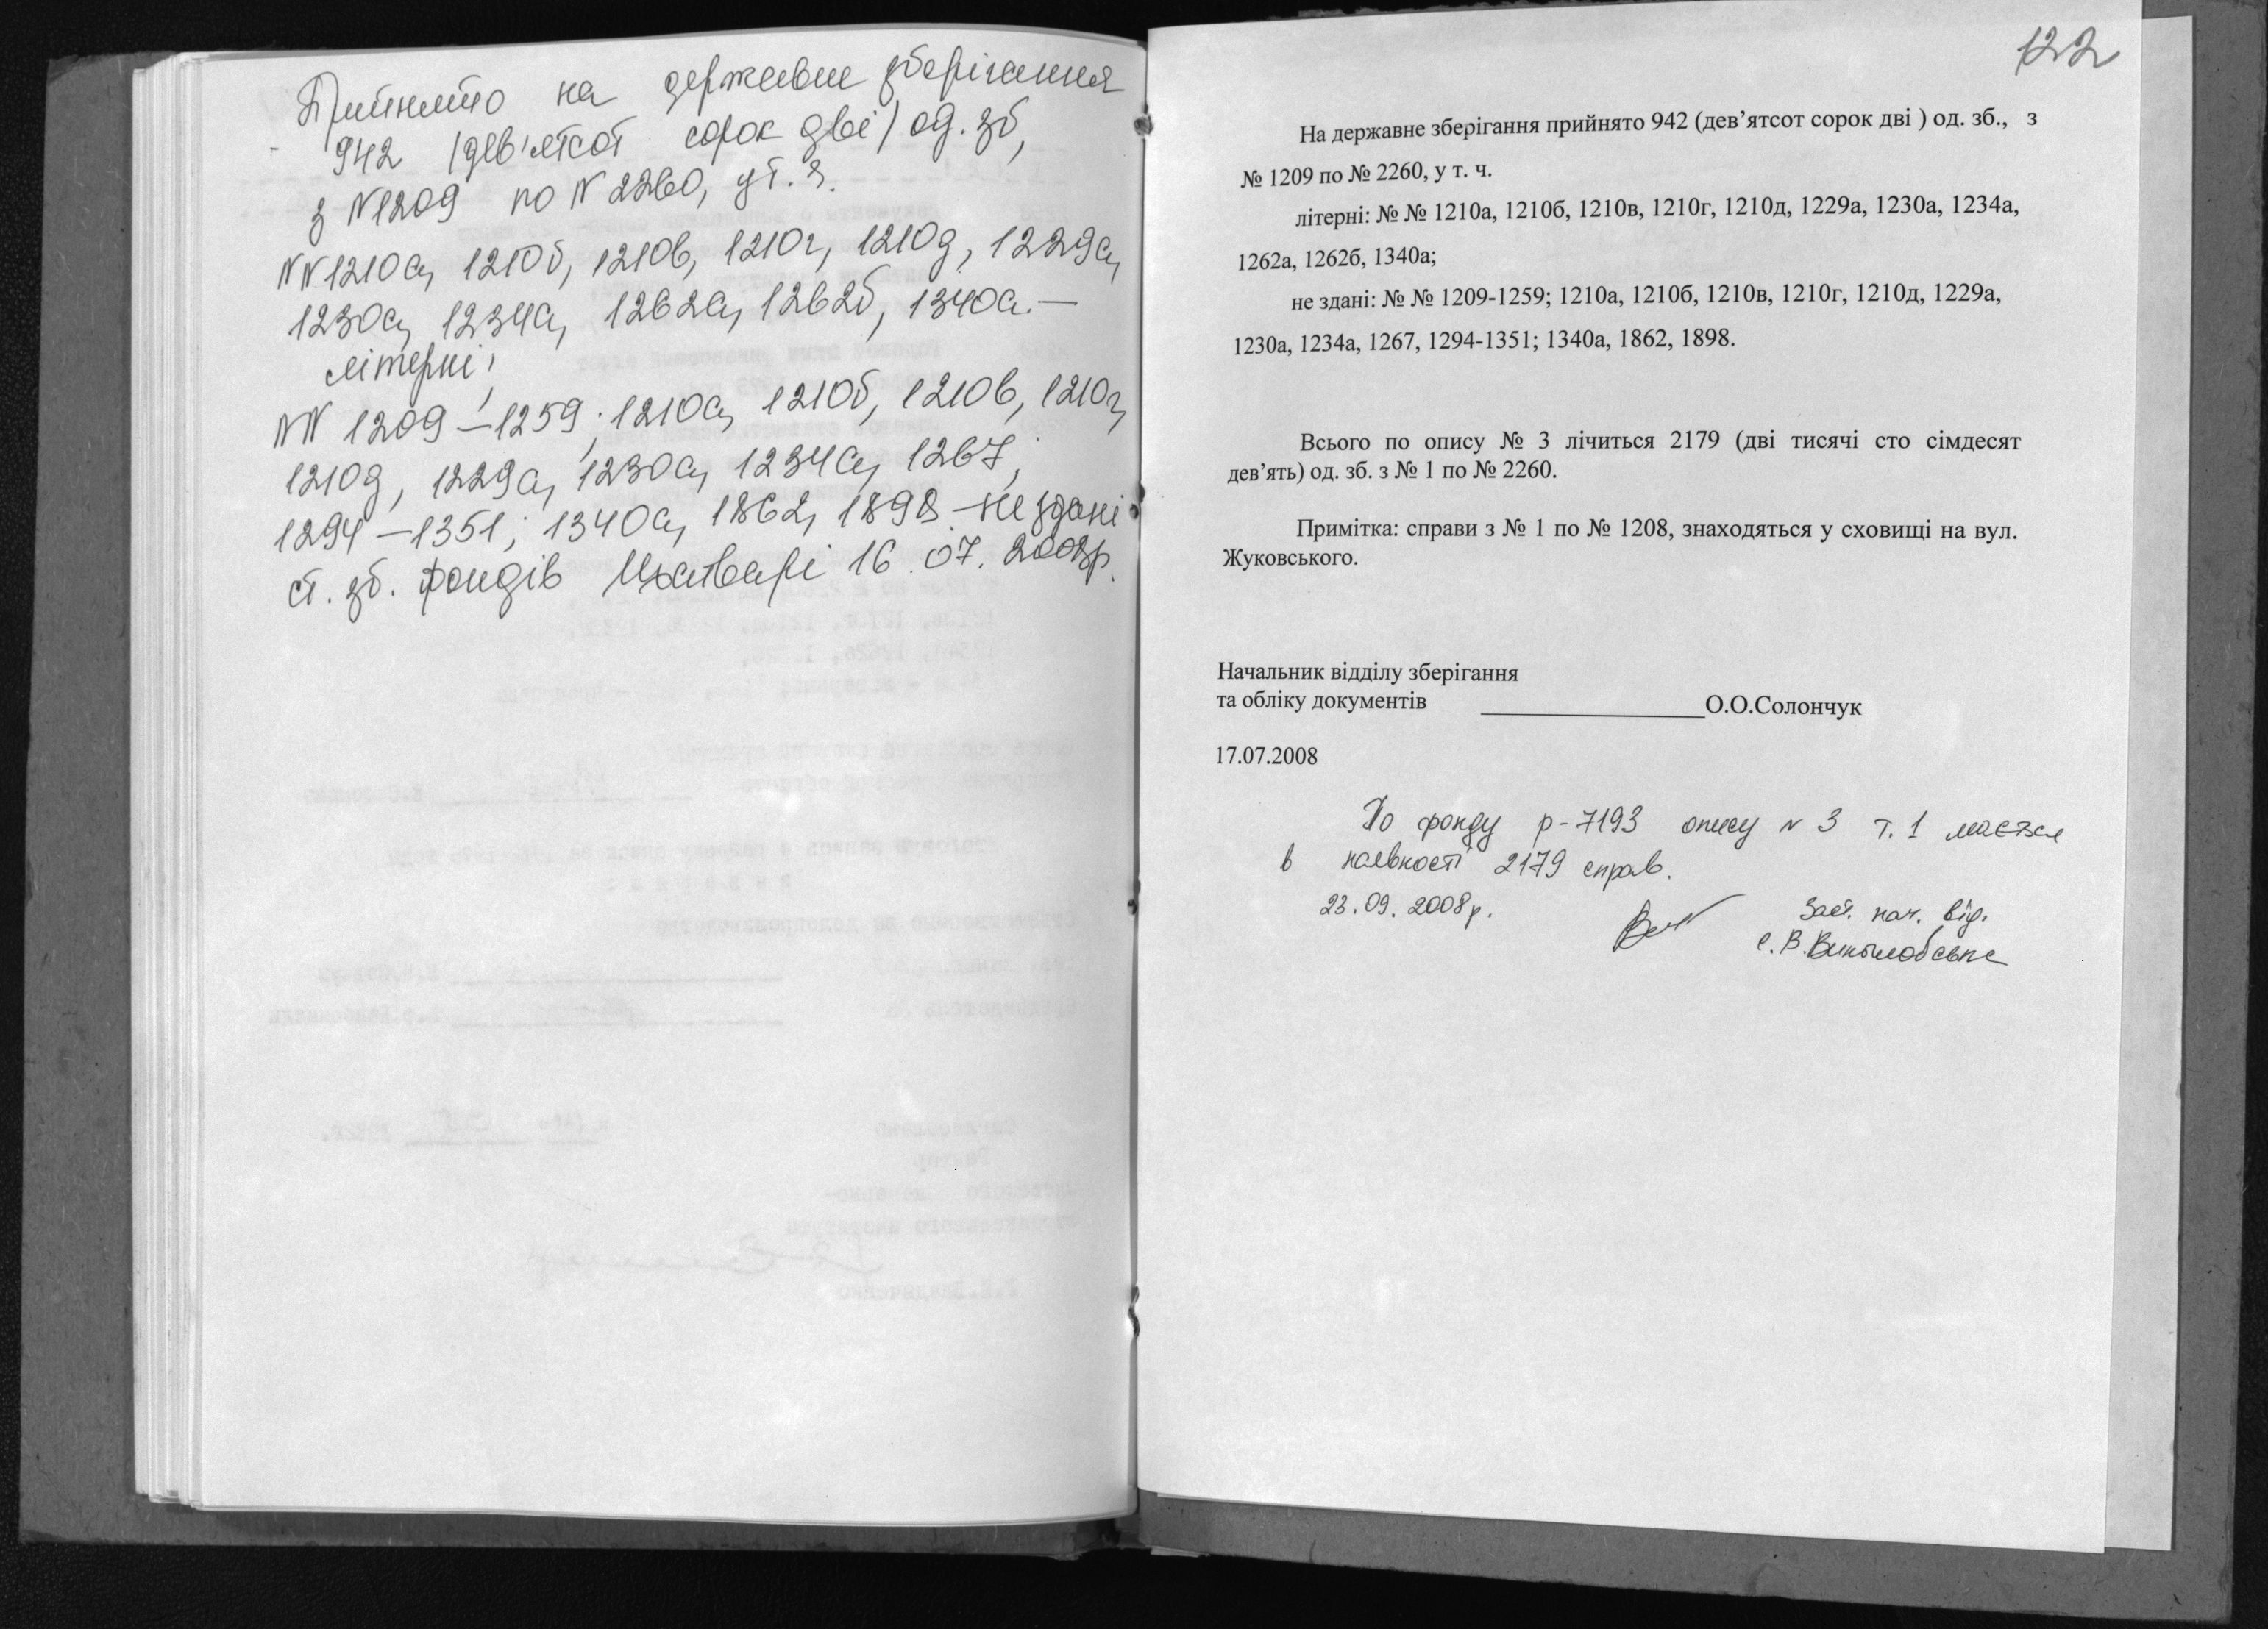 Прийнято на державне зберігання
942 (дев'ятсот сорок дві) од. зб,
з №1209 по №2260, у т. ч.
№№1210а, 1210б, 1210в, 1210г, 1210д, 1229а,
1230а, 1234а, 1262а, 1262б, 1340а. —
літерні;
№№ 1209–1259; 1210а, 1210б, 1210в, 1210г,
1210д, 1229а, 1230а, 1234а, 1267,
1294–1351; 1340а, 1862, 1898 – не здані
ст. зб. фондів 16.07.2008р.
122
На державне зберігання прийнято 942 (дев’ятсот сорок дві ) од. зб., з
№ 1209 по № 2260, у т. ч.
літерні: № № 1210а, 1210б, 1210в, 1210г, 1210д, 1229а, 1230а, 1234а,
1262а, 1262б, 1340а;
не здані: № № 1209-1259; 1210а, 1210б, 1210в, 1210г, 1210д, 1229а,
1230а, 1234а, 1267, 1294-1351; 1340а, 1862, 1898.
Всього по опису № 3 лічиться 2179 (дві тисячі сто сімдесят
дев’ять) од. зб. з № 1 по № 2260.
Примітка: справи з № 1 по № 1208, знаходяться у сховищі на вул.
Жуковського.
Начальник відділу зберігання
та обліку документів О.О.Солончук
17.07.2008
По фонду р-7193 опису № 3 т. 1 мається
в наявності 2179 справ.
23.09.2008р. Заст. нач. від.